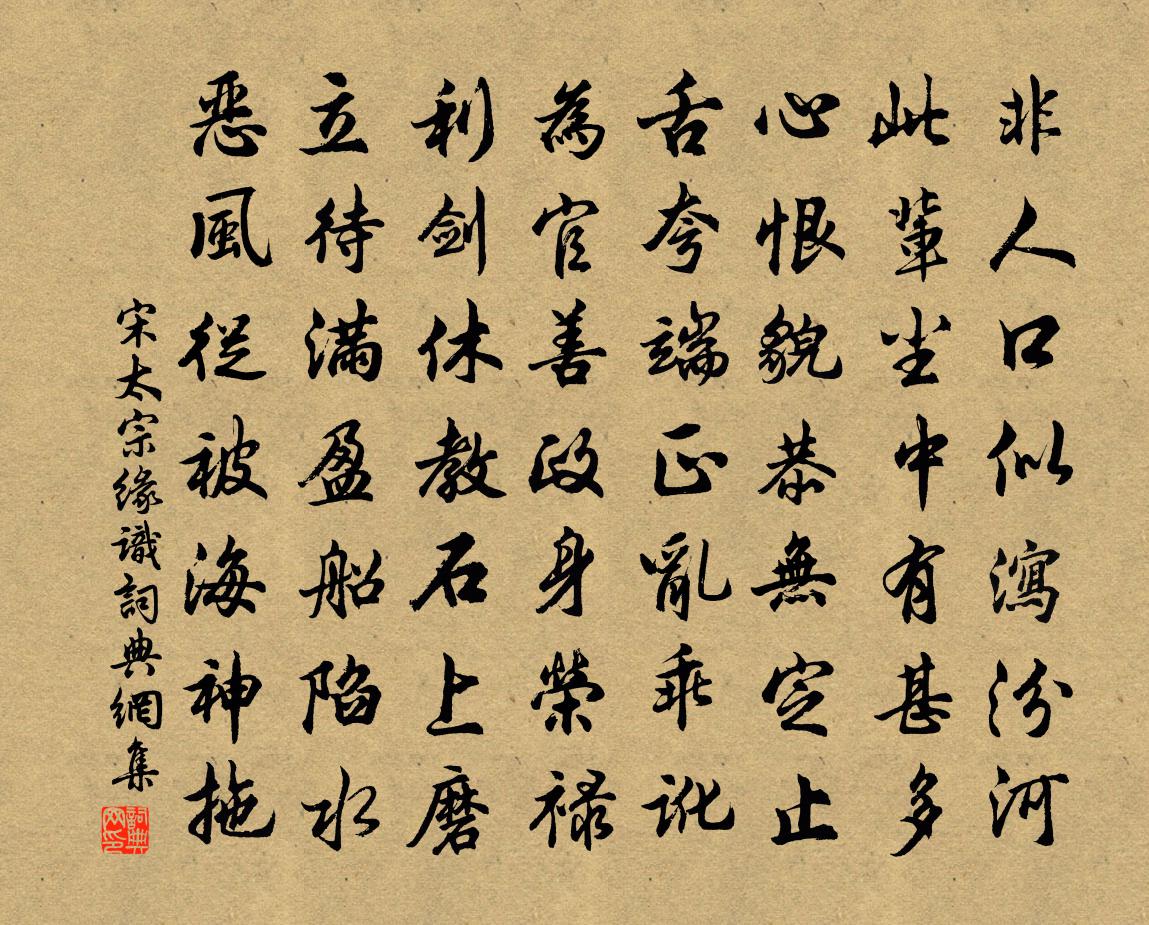 非人口似瀉汾河
此輩坐中有甚多
心恨貌恭無定止
舌夸端正亂乖訛
為官善政身榮祿
利劍休教石上磨
立待滿盈船陷水
惡風從被海神拖
宋太宗緣識詞典網集
詞典網印